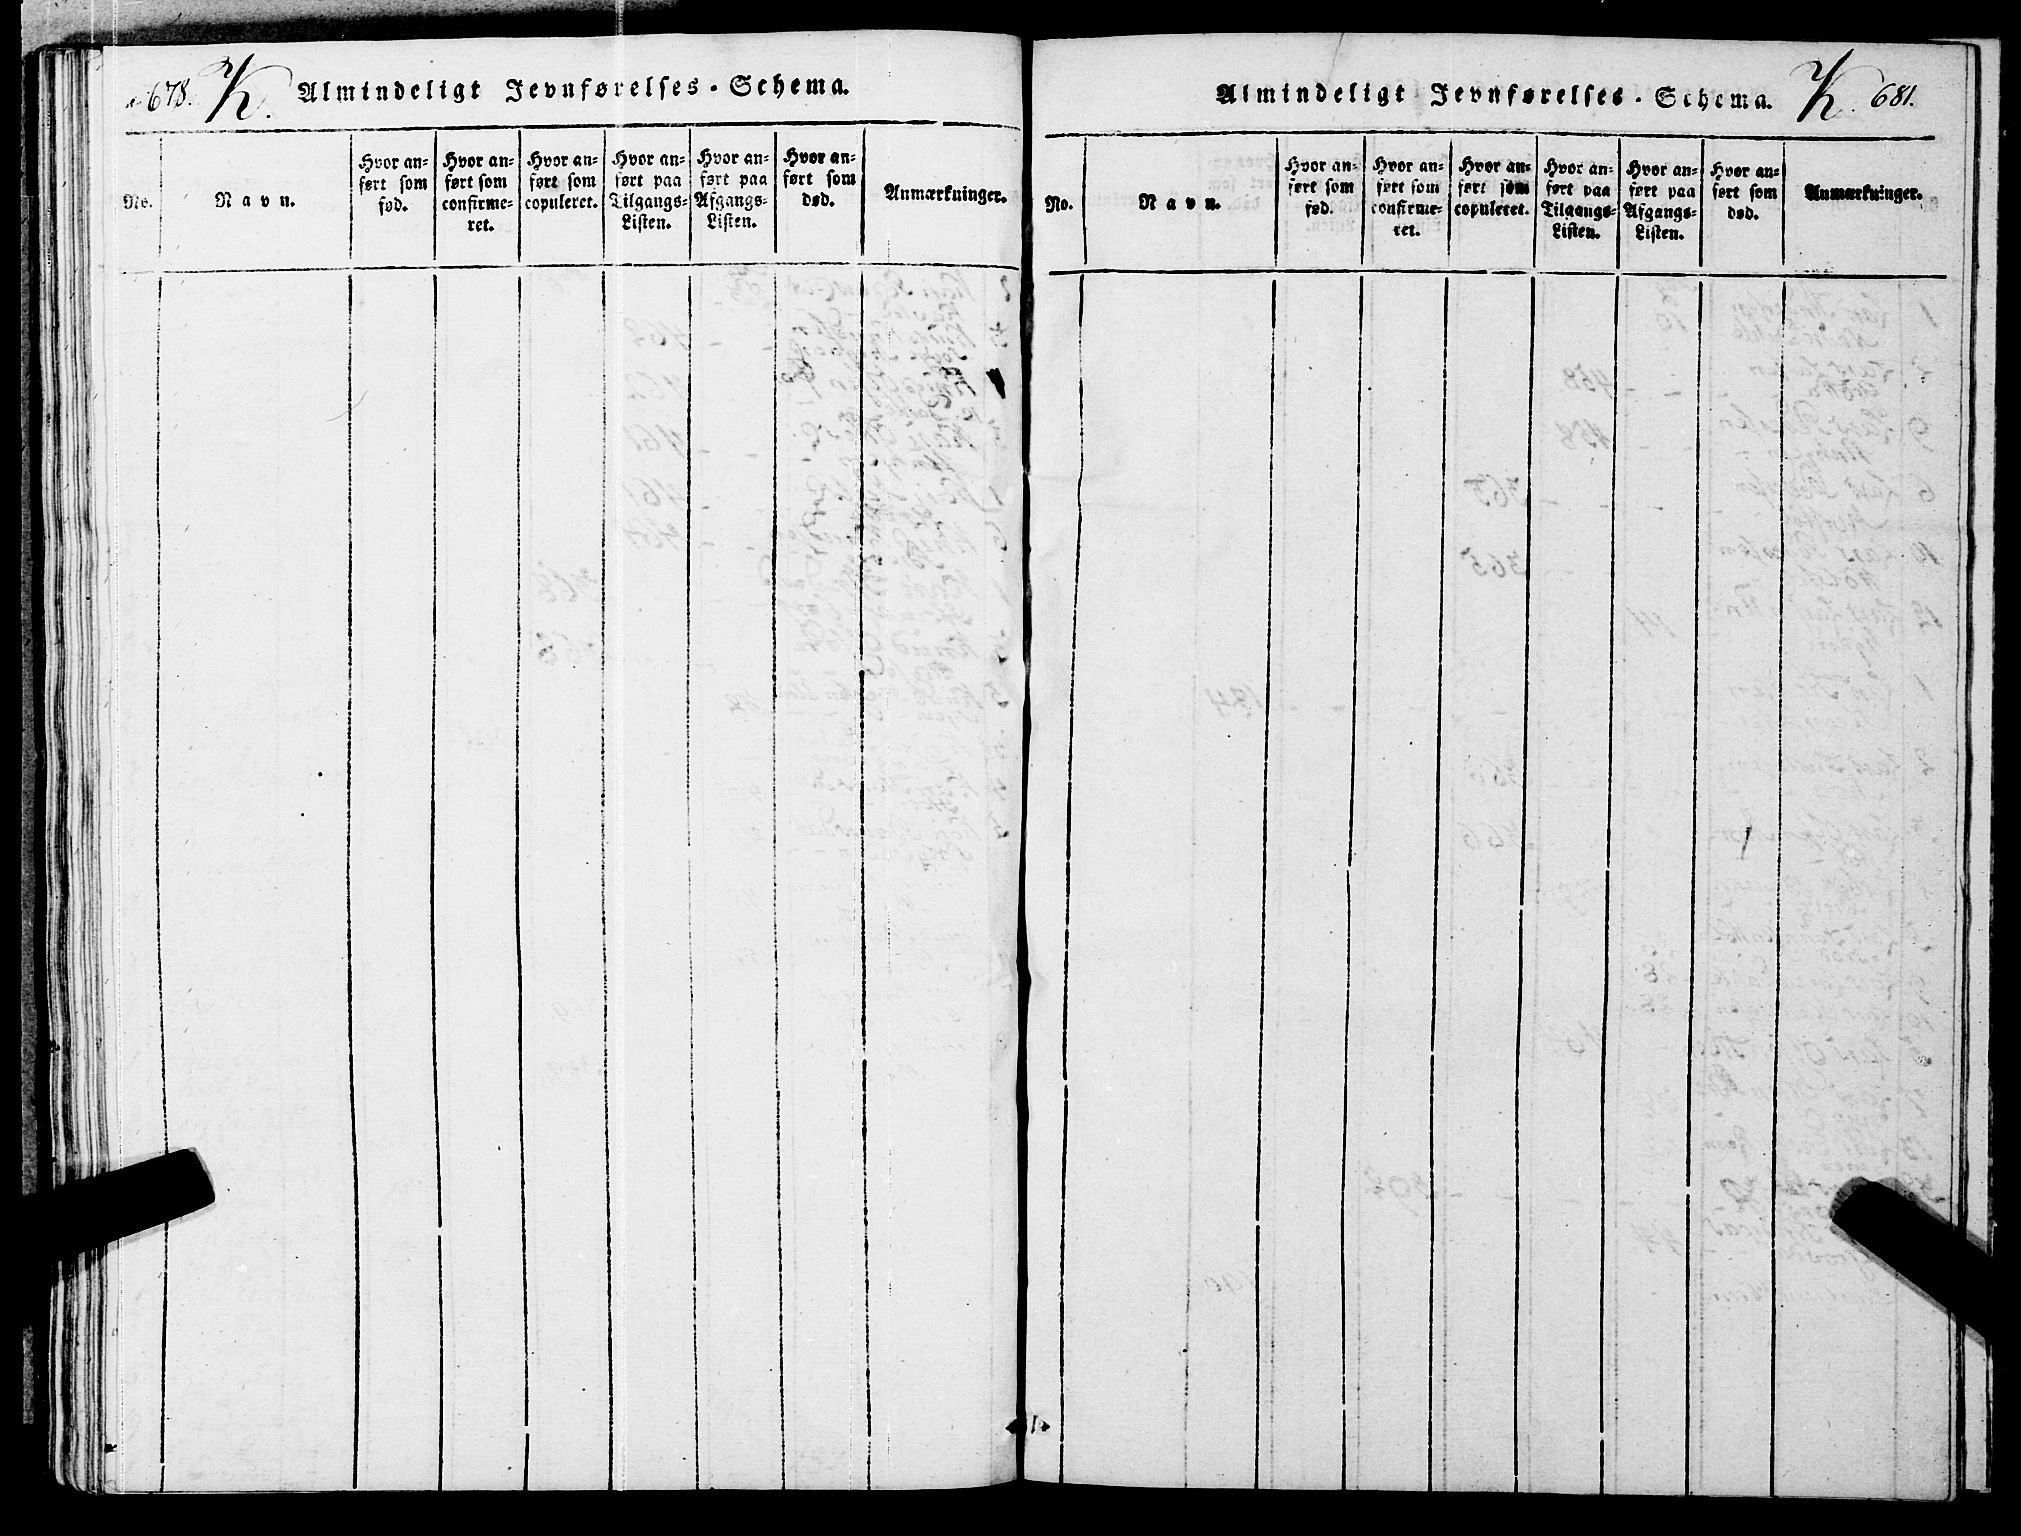 678. K. Almindeligt Jevnførelses-Schema.
No.
Navn.
Hvor an-
ført som
fød.
Hvor an-
ført som
confirme-
ret.
Hvor an-
ført som
copuleret.
Hvor an-
ført paa
Tilgangs-
Listen.
Hvor an-
ført paa
Afgangs-
Listen.
Hvor an-
ført som
død.
Anmærkninger.
Almindeligt Jevnførelses-Schema. K. 681.
No.
Navn.
Hvor an-
ført som
fød.
Hvor an-
ført som
confirme-
ret.
Hvor an-
ført som
copuleret.
Hvor an-
ført paa
Tilgangs-
Listen.
Hvor an-
ført paa
Afgangs-
Listen.
Hvor an-
ført som
død.
Anmærkninger.